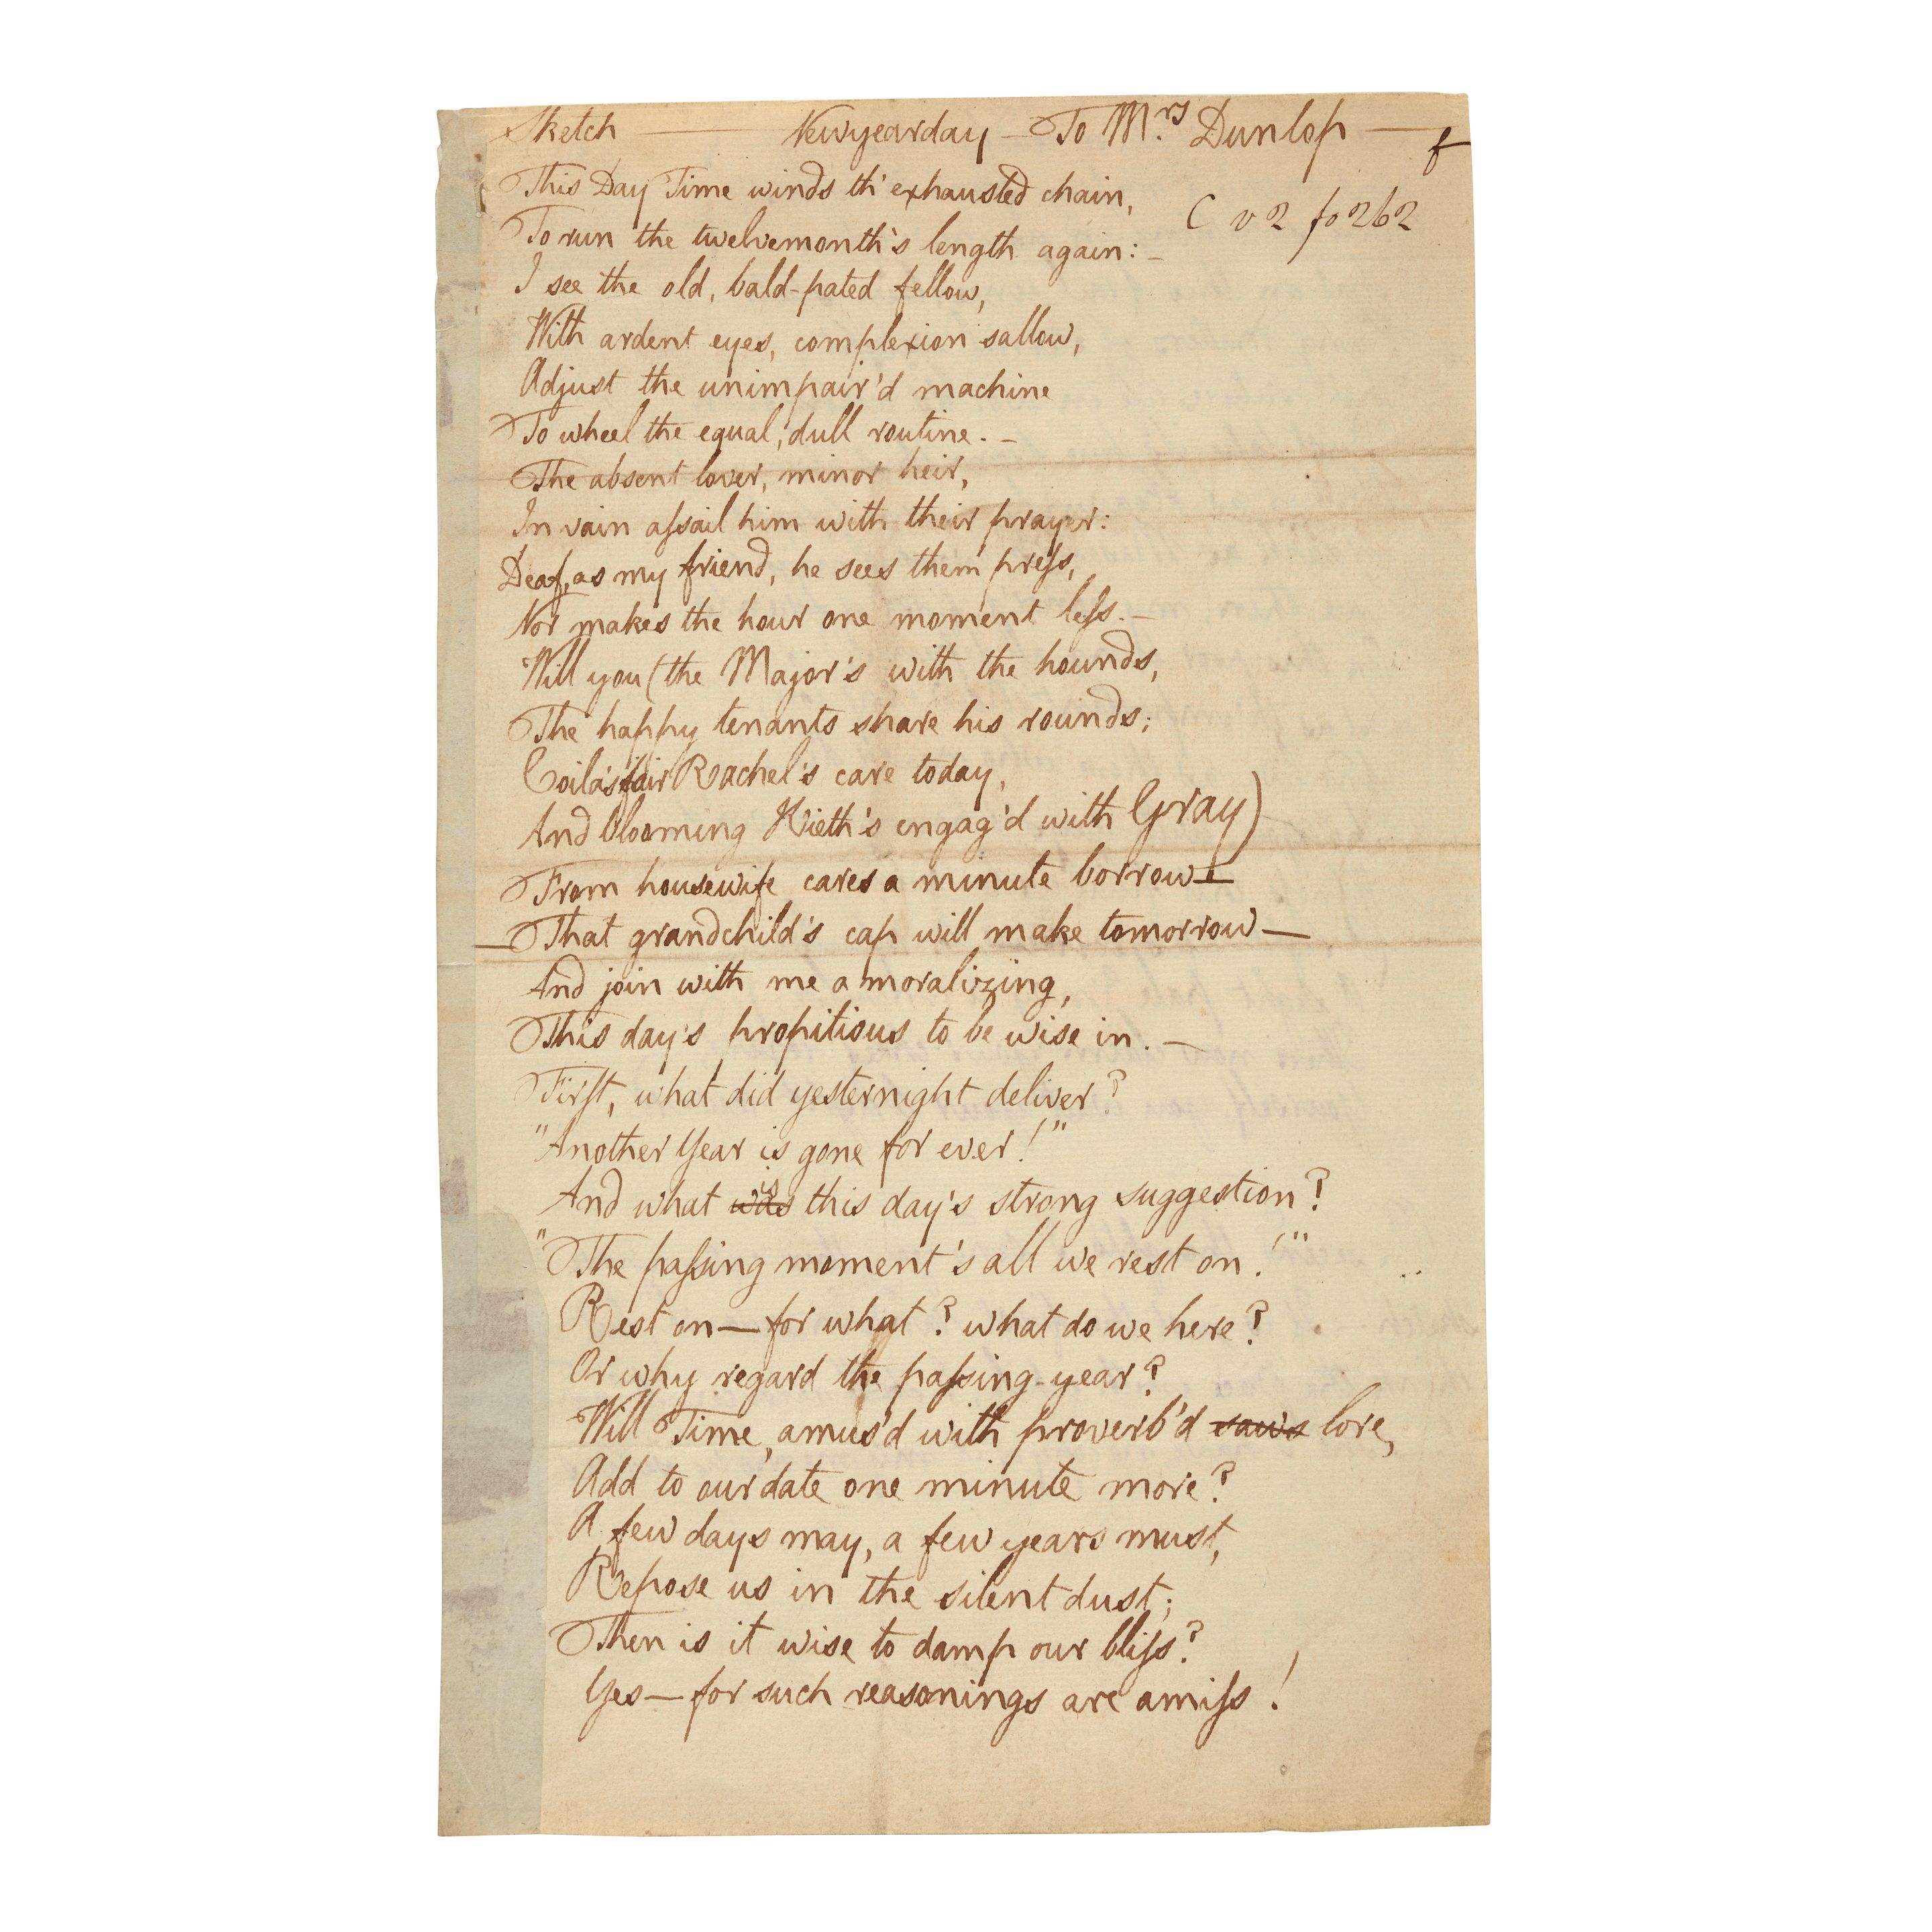 Sketch — Newyearday — To Mrs Dunlop —
This Day Time winds th' exhausted chain,
C v 2 fo 262
To run the twelvemonth's length again: —
I see the old, bald-pated fellow,
With ardent eyes, complexion sallow,
Adjust the unimpair'd machine
To wheel the equal, dull routine. —
The absent lover, minor heir,
In vain aſsail him with their prayer:
Deaf, as my friend, he sees them preſs,
Nor makes the hour one moment leſs. —
Will you (the Major's with the hounds,
The happy tenants share his rounds;
Coila's fair Rachel's care today,
And blooming Kieth's engag'd with Gray)
From housewife cares a minute borrow —
— That grandchild's cap will make tomorrow —
And join with me a moralizing,
This day's propitious to be wise in. —
Firſt, what did yesternight deliver?
"Another Year is gone for ever!"
And what was is this day's strong suggestion?
"The paſsing moment's all we rest on!"
Rest on — for what? what do we here?
Or why regard the paſsing year?
Will Time, amus'd with proverb'd saws lore,
Add to our date one minute more?
A few days may, a few years must,
Repose us in the silent dust;
Then is it wise to damp our bliſs?
Yes — for such reasonings are amiſs!